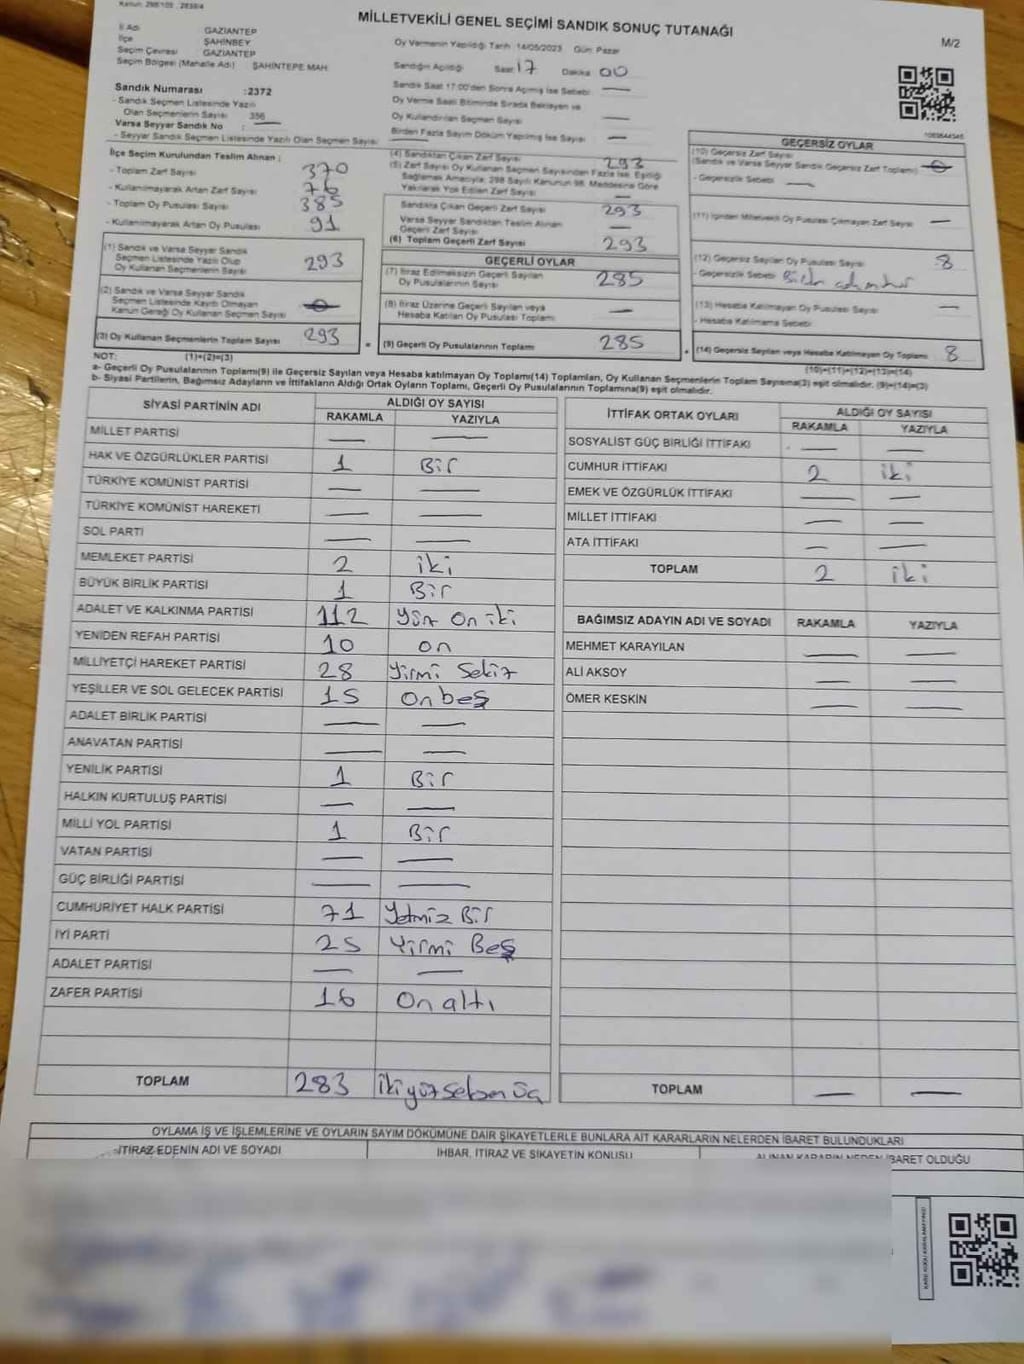 Kanun: 298/105 , 2839/4
MİLLETVEKİLİ GENEL SEÇİMİ SANDIK SONUÇ TUTANAĞI
M/2
İl Adı GAZİANTEP
İlçe ŞAHİNBEY
Seçim Çevresi GAZİANTEP
Seçim Bölgesi (Mahalle Adı) ŞAHİNTEPE MAH.
Oy Vermenin Yapıldığı Tarih :14/05/2023 Gün: Pazar
Sandığın Açıldığı Saat 17 Dakika 00
Sandık Saat 17:00'den Sonra Açılmış İse Sebebi
Oy Verme Saati Bitiminde Sırada Bekleyen ve
Oy Kullandırılan Seçmen Sayısı
Birden Fazla Sayım Döküm Yapılmış İse Sayısı
Sandık Numarası :2372
- Sandık Seçmen Listesinde Yazılı
Olan Seçmenlerin Sayısı 356
Varsa Seyyar Sandık No :
- Seyyar Sandık Seçmen Listesinde Yazılı Olan Seçmen Sayısı
İlçe Seçim Kurulundan Teslim Alınan :
- Toplam Zarf Sayısı 370
- Kullanılmayarak Artan Zarf Sayısı 76
- Toplam Oy Pusulası Sayısı 385
- Kullanılmayarak Artan Oy Pusulası 91
(1) Sandık ve Varsa Seyyar Sandık
Seçmen Listesinde Yazılı Olup
Oy Kullanan Seçmenlerin Sayısı 293
(2) Sandık ve Varsa Seyyar Sandık
Seçmen Listesinde Kayıtlı Olmayan
Kanun Gereği Oy Kullanan Seçmen Sayısı
(3) Oy Kullanan Seçmenlerin Toplam Sayısı 293
(4) Sandıktan Çıkan Zarf Sayısı 293
(5) Zarf Sayısı Oy Kullanan Seçmen Sayısından Fazla İse, Eşitliği
Sağlamak Amacıyla; 298 Sayılı Kanunun 98. Maddesine Göre
Yakılarak Yok Edilen Zarf Sayısı
Sandıkta Çıkan Geçerli Zarf Sayısı 293
Varsa Seyyar Sandıktan Teslim Alınan
Geçerli Zarf Sayısı
(6) Toplam Geçerli Zarf Sayısı 293
GEÇERLİ OYLAR
(7) İtiraz Edilmeksizin Geçerli Sayılan
Oy Pusulalarının Sayısı 285
(8) İtiraz Üzerine Geçerli Sayılan veya
Hesaba Katılan Oy Pusulası Toplamı
= (9) Geçerli Oy Pusulalarının Toplamı 285
GEÇERSİZ OYLAR
(10) Geçersiz Zarf Sayısı
(Sandık ve Varsa Seyyar Sandık Geçersiz Zarf Toplamı)
- Geçersizlik Sebebi
(11) İçinden Milletvekili Oy Pusulası Çıkmayan Zarf Sayısı
(12) Geçersiz Sayılan Oy Pusulası Sayısı 8
- Geçersizlik Sebebi
(13) Hesaba Katılmayan Oy Pusulası Sayısı
- Hesaba Katılmama Sebebi
+ (14) Geçersiz Sayılan veya Hesaba Katılmayan Oy Toplamı 8
NOT: (1)+(2)=(3) (10)+(11)+(12)+(13)=(14)
a- Geçerli Oy Pusulalarının Toplamı(9) ile Geçersiz Sayılan veya Hesaba katılmayan Oy Toplamı(14) Toplamları, Oy Kullanan Seçmenlerin Toplam Sayısına(3) eşit olmalıdır. (9)+(14)=(3)
b- Siyasi Partilerin, Bağımsız Adayların ve İttifakların Aldığı Ortak Oyların Toplamı, Geçerli Oy Pusulalarının Toplamına(9) eşit olmalıdır.
SİYASİ PARTİNİN ADI ALDIĞI OY SAYISI
RAKAMLA YAZIYLA
MİLLET PARTİSİ
HAK VE ÖZGÜRLÜKLER PARTİSİ 1 Bir
TÜRKİYE KOMÜNİST PARTİSİ
TÜRKİYE KOMÜNİST HAREKETİ
SOL PARTİ
MEMLEKET PARTİSİ 2 iki
BÜYÜK BİRLİK PARTİSİ 1 Bir
ADALET VE KALKINMA PARTİSİ 112 Yüz On iki
YENİDEN REFAH PARTİSİ 10 on
MİLLİYETÇİ HAREKET PARTİSİ 28 Yirmi Sekiz
YEŞİLLER VE SOL GELECEK PARTİSİ 15 On beş
ADALET BİRLİK PARTİSİ
ANAVATAN PARTİSİ
YENİLİK PARTİSİ 1 Bir
HALKIN KURTULUŞ PARTİSİ
MİLLİ YOL PARTİSİ 1 Bir
VATAN PARTİSİ
GÜÇ BİRLİĞİ PARTİSİ
CUMHURİYET HALK PARTİSİ 71 Yetmiz Bir
İYİ PARTİ 25 Yirmi Beş
ADALET PARTİSİ
ZAFER PARTİSİ 16 On altı
TOPLAM 283
İTTİFAK ORTAK OYLARI ALDIĞI OY SAYISI
RAKAMLA YAZIYLA
SOSYALİST GÜÇ BİRLİĞİ İTTİFAKI
CUMHUR İTTİFAKI 2 iki
EMEK VE ÖZGÜRLÜK İTTİFAKI
MİLLET İTTİFAKI
ATA İTTİFAKI
TOPLAM 2 iki
BAĞIMSIZ ADAYIN ADI VE SOYADI RAKAMLA YAZIYLA
MEHMET KARAYILAN
ALİ AKSOY
ÖMER KESKİN
TOPLAM
OYLAMA İŞ VE İŞLEMLERİNE VE OYLARIN SAYIM DÖKÜMÜNE DAİR ŞİKAYETLERLE BUNLARA AİT KARARLARIN NELERDEN İBARET BULUNDUKLARI
İTİRAZ EDENİN ADI VE SOYADI İHBAR, İTİRAZ VE ŞİKAYETİN KONUSU ALINAN KARARIN NEDEN İBARET OLDUĞU